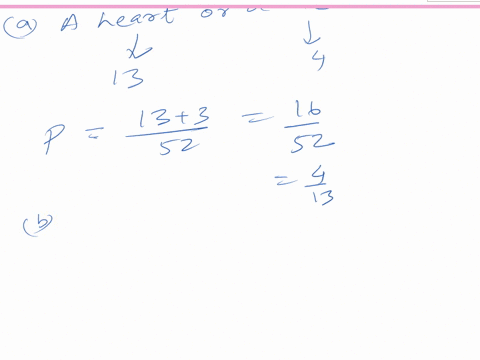 (a) A heart or a
13 4
P = 13+3/52 = 16/52
= 4/13
(b)